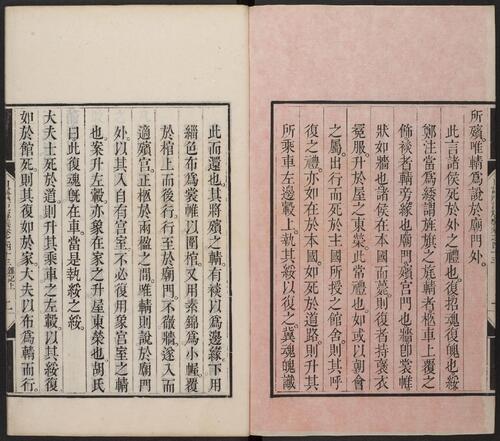 所殯唯輤爲說於廟門外
此言諸侯死於外之禮也復招魂復魄也綏
鄭注當爲緌謂旌旗之旄輤者柩車上覆之
飾裧者輤旁緣也廟門殯宮門也牆卽裳帷
狀如牆也諸侯在本國而薨則復者持褒衣
冕服升於屋之東榮此常禮也如或以朝會
之屬出行而死於主國所授之館舍則其呼
復之禮亦如在於本國如死於道路則升其
所乘車左邊轂上執其綏以復之冀魂魄識
此而還也其將殯之輤有裧以爲邊緣下用
緇色布爲裳帷以圍棺又用素錦爲小幄覆
於棺上而後行行至於廟門不徹牆遂入而
適殯宮正柩於兩楹之間唯輤則說於廟門
外以其入自有宮室不必復用象宮室之輤
也案升左轂亦象在家之升屋東榮也胡氏
曰此復魂旣在車當是執綏之綏
大夫士死於道則升其乘車之左轂以其綏復
如於館死則其復如於家大夫以布爲輤而行